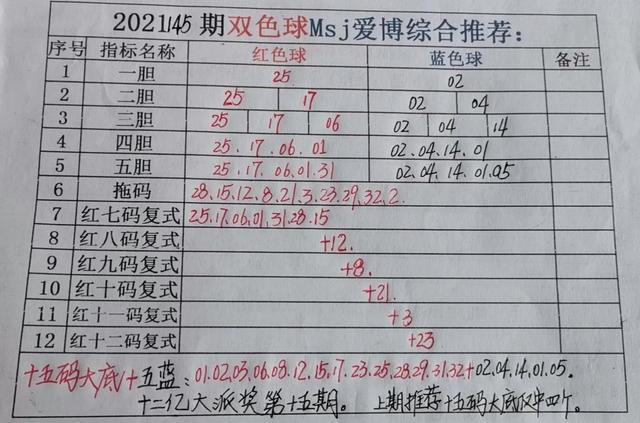 2021145期双色球Msj爱博综合推荐：
序号 指标名称 红色球 蓝色球 备注
1 一胆 25 02
2 二胆 25 17 02 04
3 三胆 25 17 06 02 04 14
4 四胆 25.17.06.01 02.04.14.01
5 五胆 25.17.06.01.31 02.04.14.01.05
6 拖码 28.15.12.8.21.3.23.29.32.2.
7 红七码复式 25.17.06.01.31.28.15
8 红八码复式 +12.
9 红九码复式 +8.
10 红十码复式 +21.
11 红十一码复式 +3
12 红十二码复式 +23
十五码大底+五蓝：01.02.03.06.08.12.15.17.23.25.28.29.31.32+02.04.14.01.05.
十二亿大派奖第十五期。 上期推荐十五码大底仅中四个。